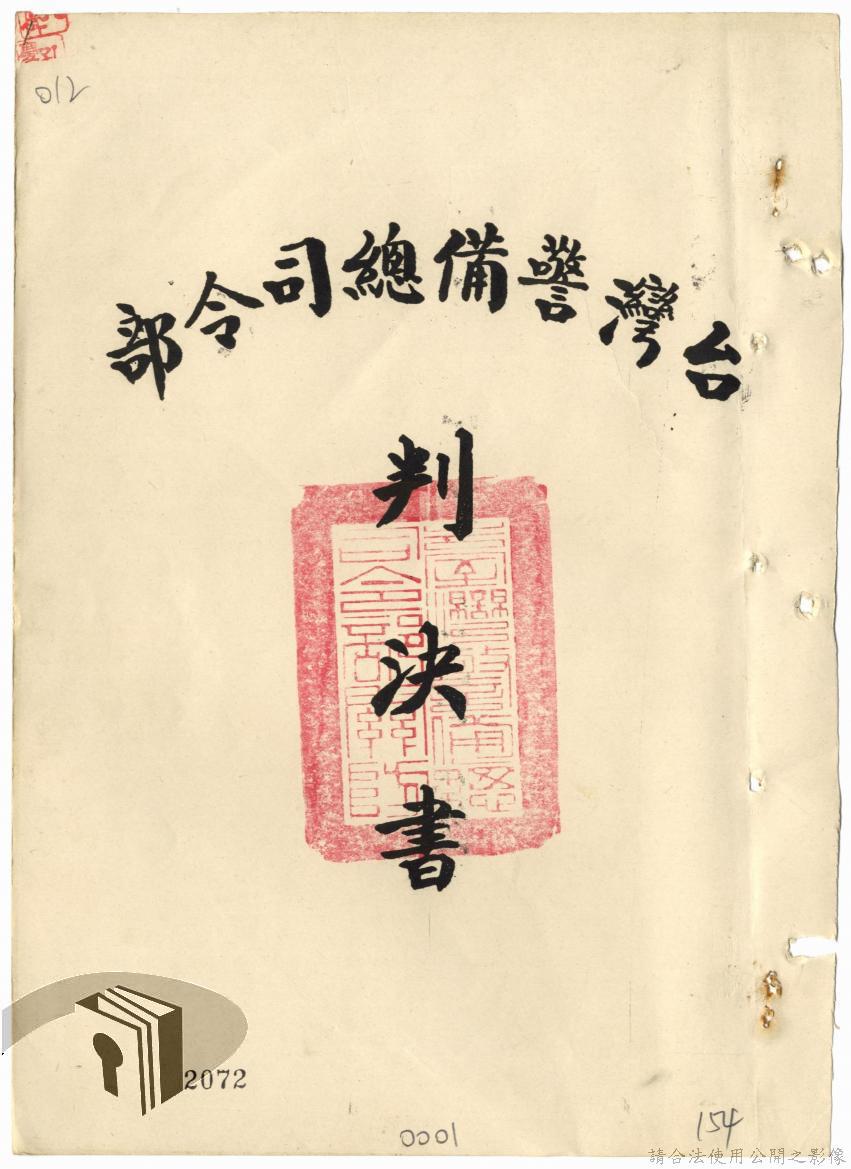 012
台灣警備總司令部
判
決
書
2072
0001
154
請合法使用公開之影像